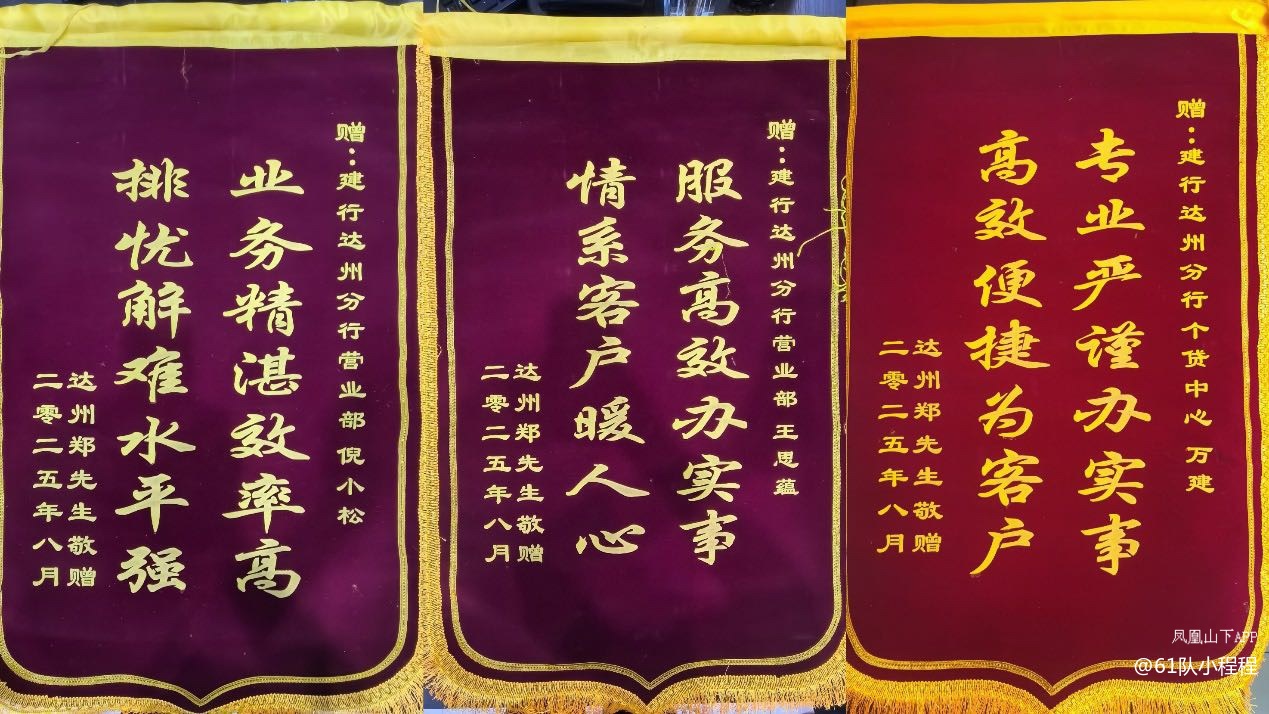 赠：建行达州分行营业部倪小松
业务精湛效率高
排忧解难水平强
达州郑先生敬赠
二零二五年八月
赠：建行达州分行营业部王思蕴
服务高效办实事
情系客户暖人心
达州郑先生敬赠
二零二五年八月
赠：建行达州分行个贷中心万建
专业严谨办实事
高效便捷为客户
达州郑先生敬赠
二零二五年八月
凤凰山下APP
@61队小程程